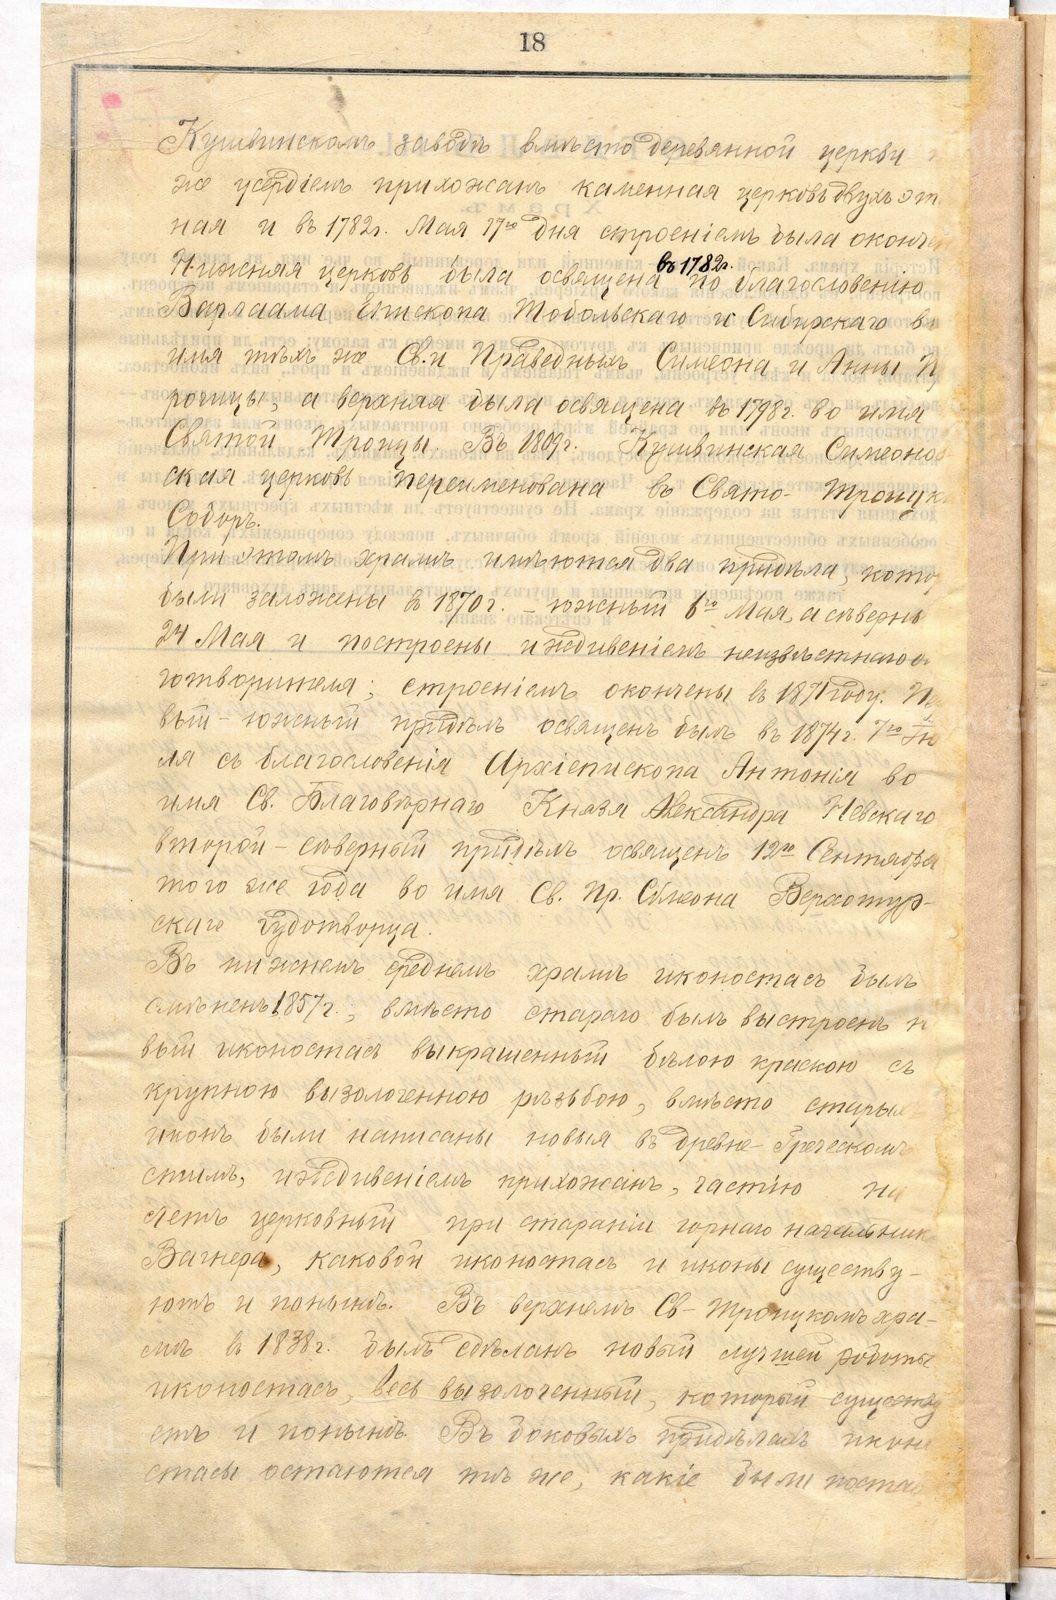 18
Кушвинскомъ заводѣ вмѣсто деревянной церкви
же усердіемъ прихожанъ каменная церковь двухъ эт
ная и въ 1782г. Мая 17го дня строеніемъ была оконч
въ 1782г.
Нижняя церковь была освящена по благословенію
Варлаама Епископа Тобольскаго и Сибирскаго в
имя тѣхъ же Св.и Праведныхъ Симеона и Анны П
рочицы, а верхняя была освящена въ 1798г. во имя
Святой Троицы. Въ 1809г. Кушвинская Симеонов
ская церковь переименована въ Свято-Троицк
Соборъ.
При этомъ храмѣ имѣются два придѣла, кото
были заложены въ 1870г. - южный 6го Мая, а сѣверн
24 Мая и построены иждивеніемъ неизвѣстнаго
готворителя; строеніемъ окончены въ 1871 году. Пе
вый - южный придѣлъ освященъ былъ въ 1874г. 7го Ію
ля съ благословенія Архіепископа Антонія во
имя Св. Благовѣрнаго Князя Александра Невскаго
второй - сѣверный придѣлъ освященъ 12го Сентября
того же года во имя Св. Пр. Симеона Верхотур-
скаго Чудотворца.
Въ нижнемъ среднемъ храмѣ иконостасъ былъ
смѣненъ 1857г.; вмѣсто стараго былъ выстроенъ н
вый иконостасъ выкрашенный бѣлою краскою съ
крупною вызолоченною рѣзьбою, вмѣсто старых
иконъ были написаны новыя въ древне-Греческомъ
стилѣ, иждивеніемъ прихожанъ, частію на
счетъ церковный при стараніи горнаго начальник
Вагнера, каковой иконостасъ и иконы существу-
ютъ и понынѣ. Въ верхнемъ Св-Троицкомъ хра-
мѣ въ 1838г. былъ сдѣланъ новый лучшей работы
иконостасъ, весь вызолоченный, который существу
етъ и понынѣ. Въ боковыхъ придѣлахъ икон
стасы остаются тѣ же, какіе были поста